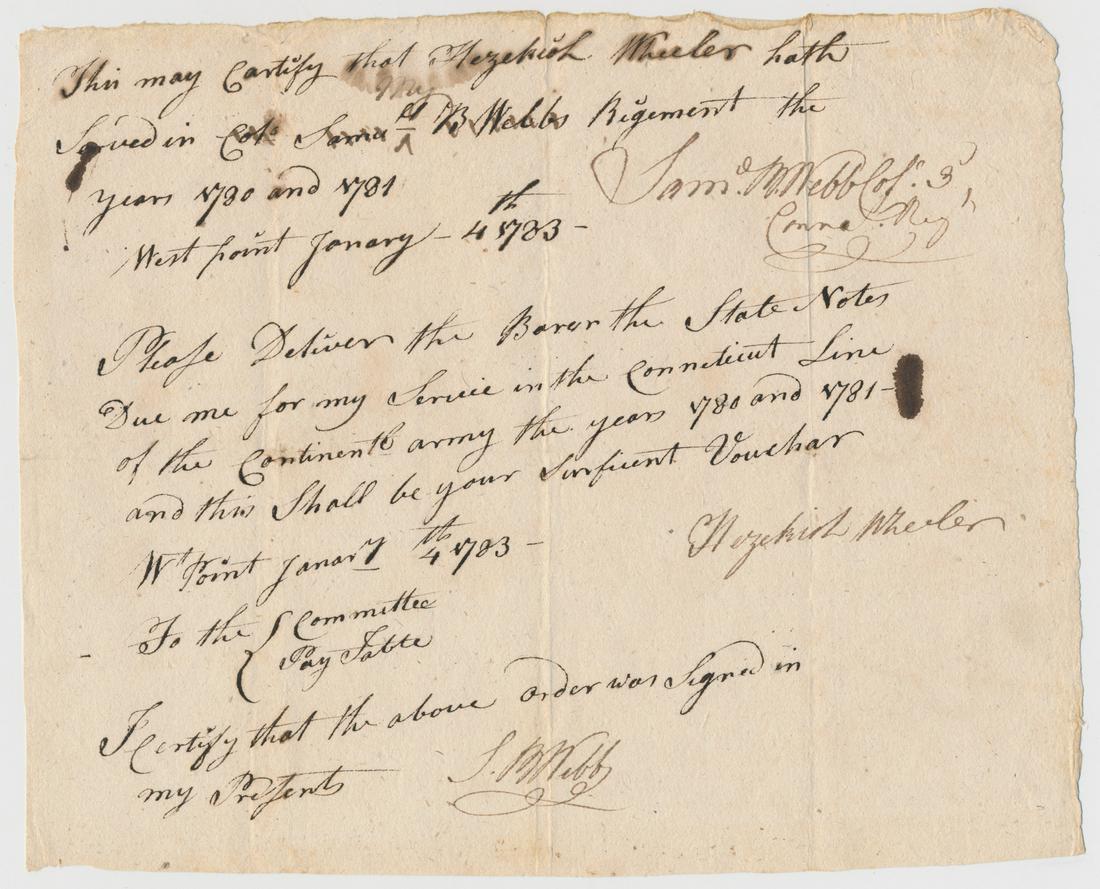 This may Cartify that Hezekiah Wheeler hath
Servedin Colo Samuel B Webbs Rigement the
years 1780 and 1781
West point Janary - 4th 1783 -
Saml. B. Webb Col. 3d
Connet. Regt
Please Deliver the Barer the State Notes
Due me for my Servie in the Conneticut Line
of the Continentl army the years 1780 and 1781 -
and this Shall be your Surficent Vouchar
Wt Point Janary 4th 1783 -
Hezekiah Wheeler
To the { Committee
Pay Table
I Certify that the above order was Signed in
my Presents
S. B Webb